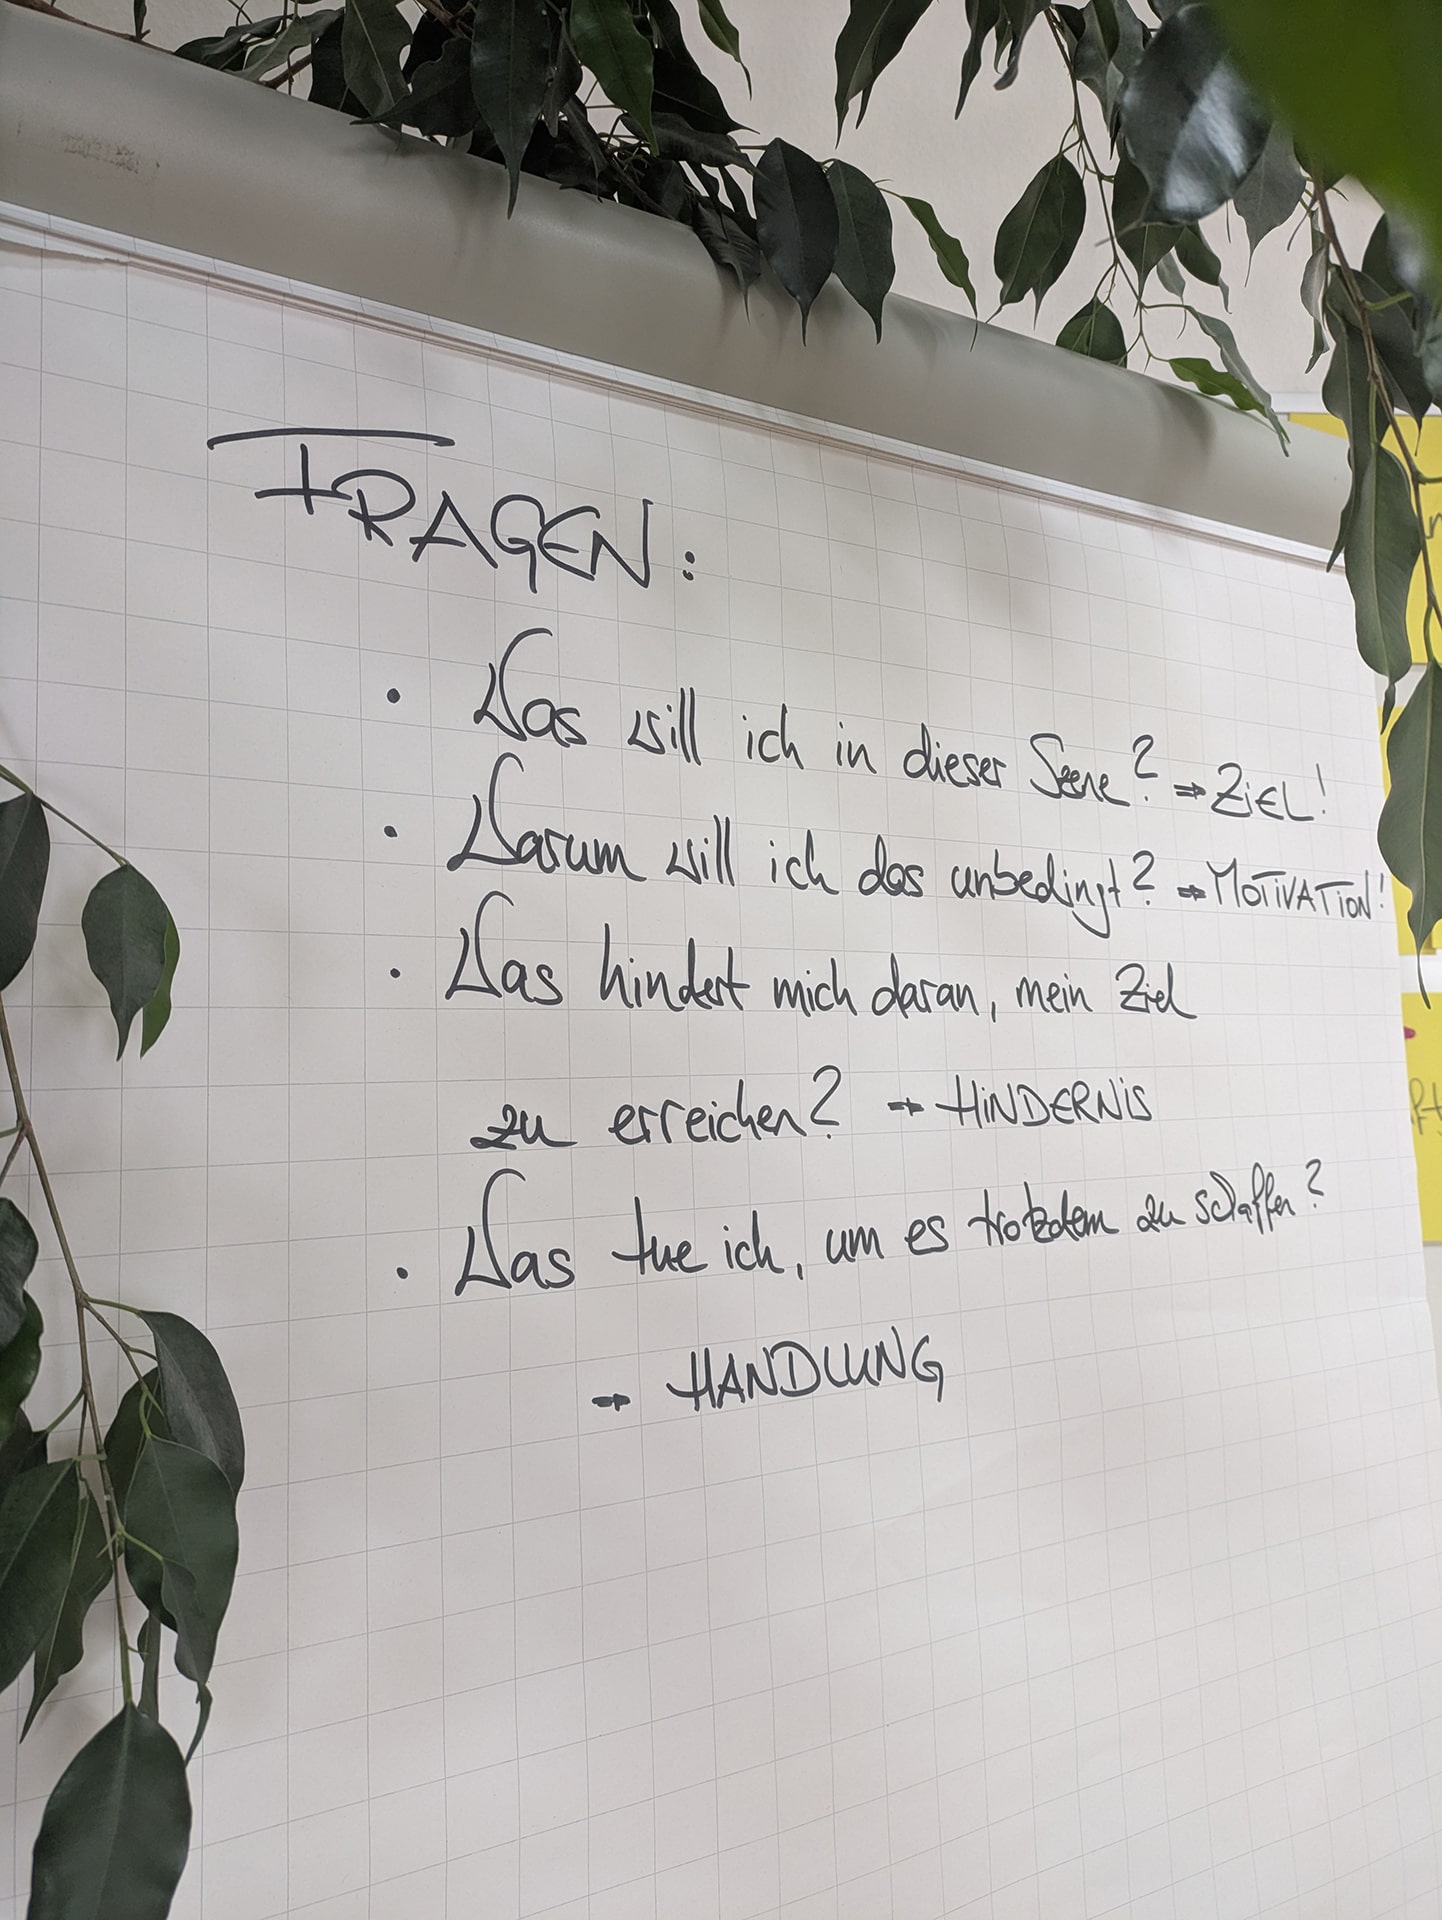 FRAGEN:
• Was will ich in dieser Szene? ⇒ ZIEL!
• Warum will ich das unbedingt? ⇒ MOTIVATION!
• Was hindert mich daran, mein Ziel
zu erreichen? ⇒ HINDERNIS
• Was tue ich, um es trotzdem zu schaffen?
⇒ HANDLUNG